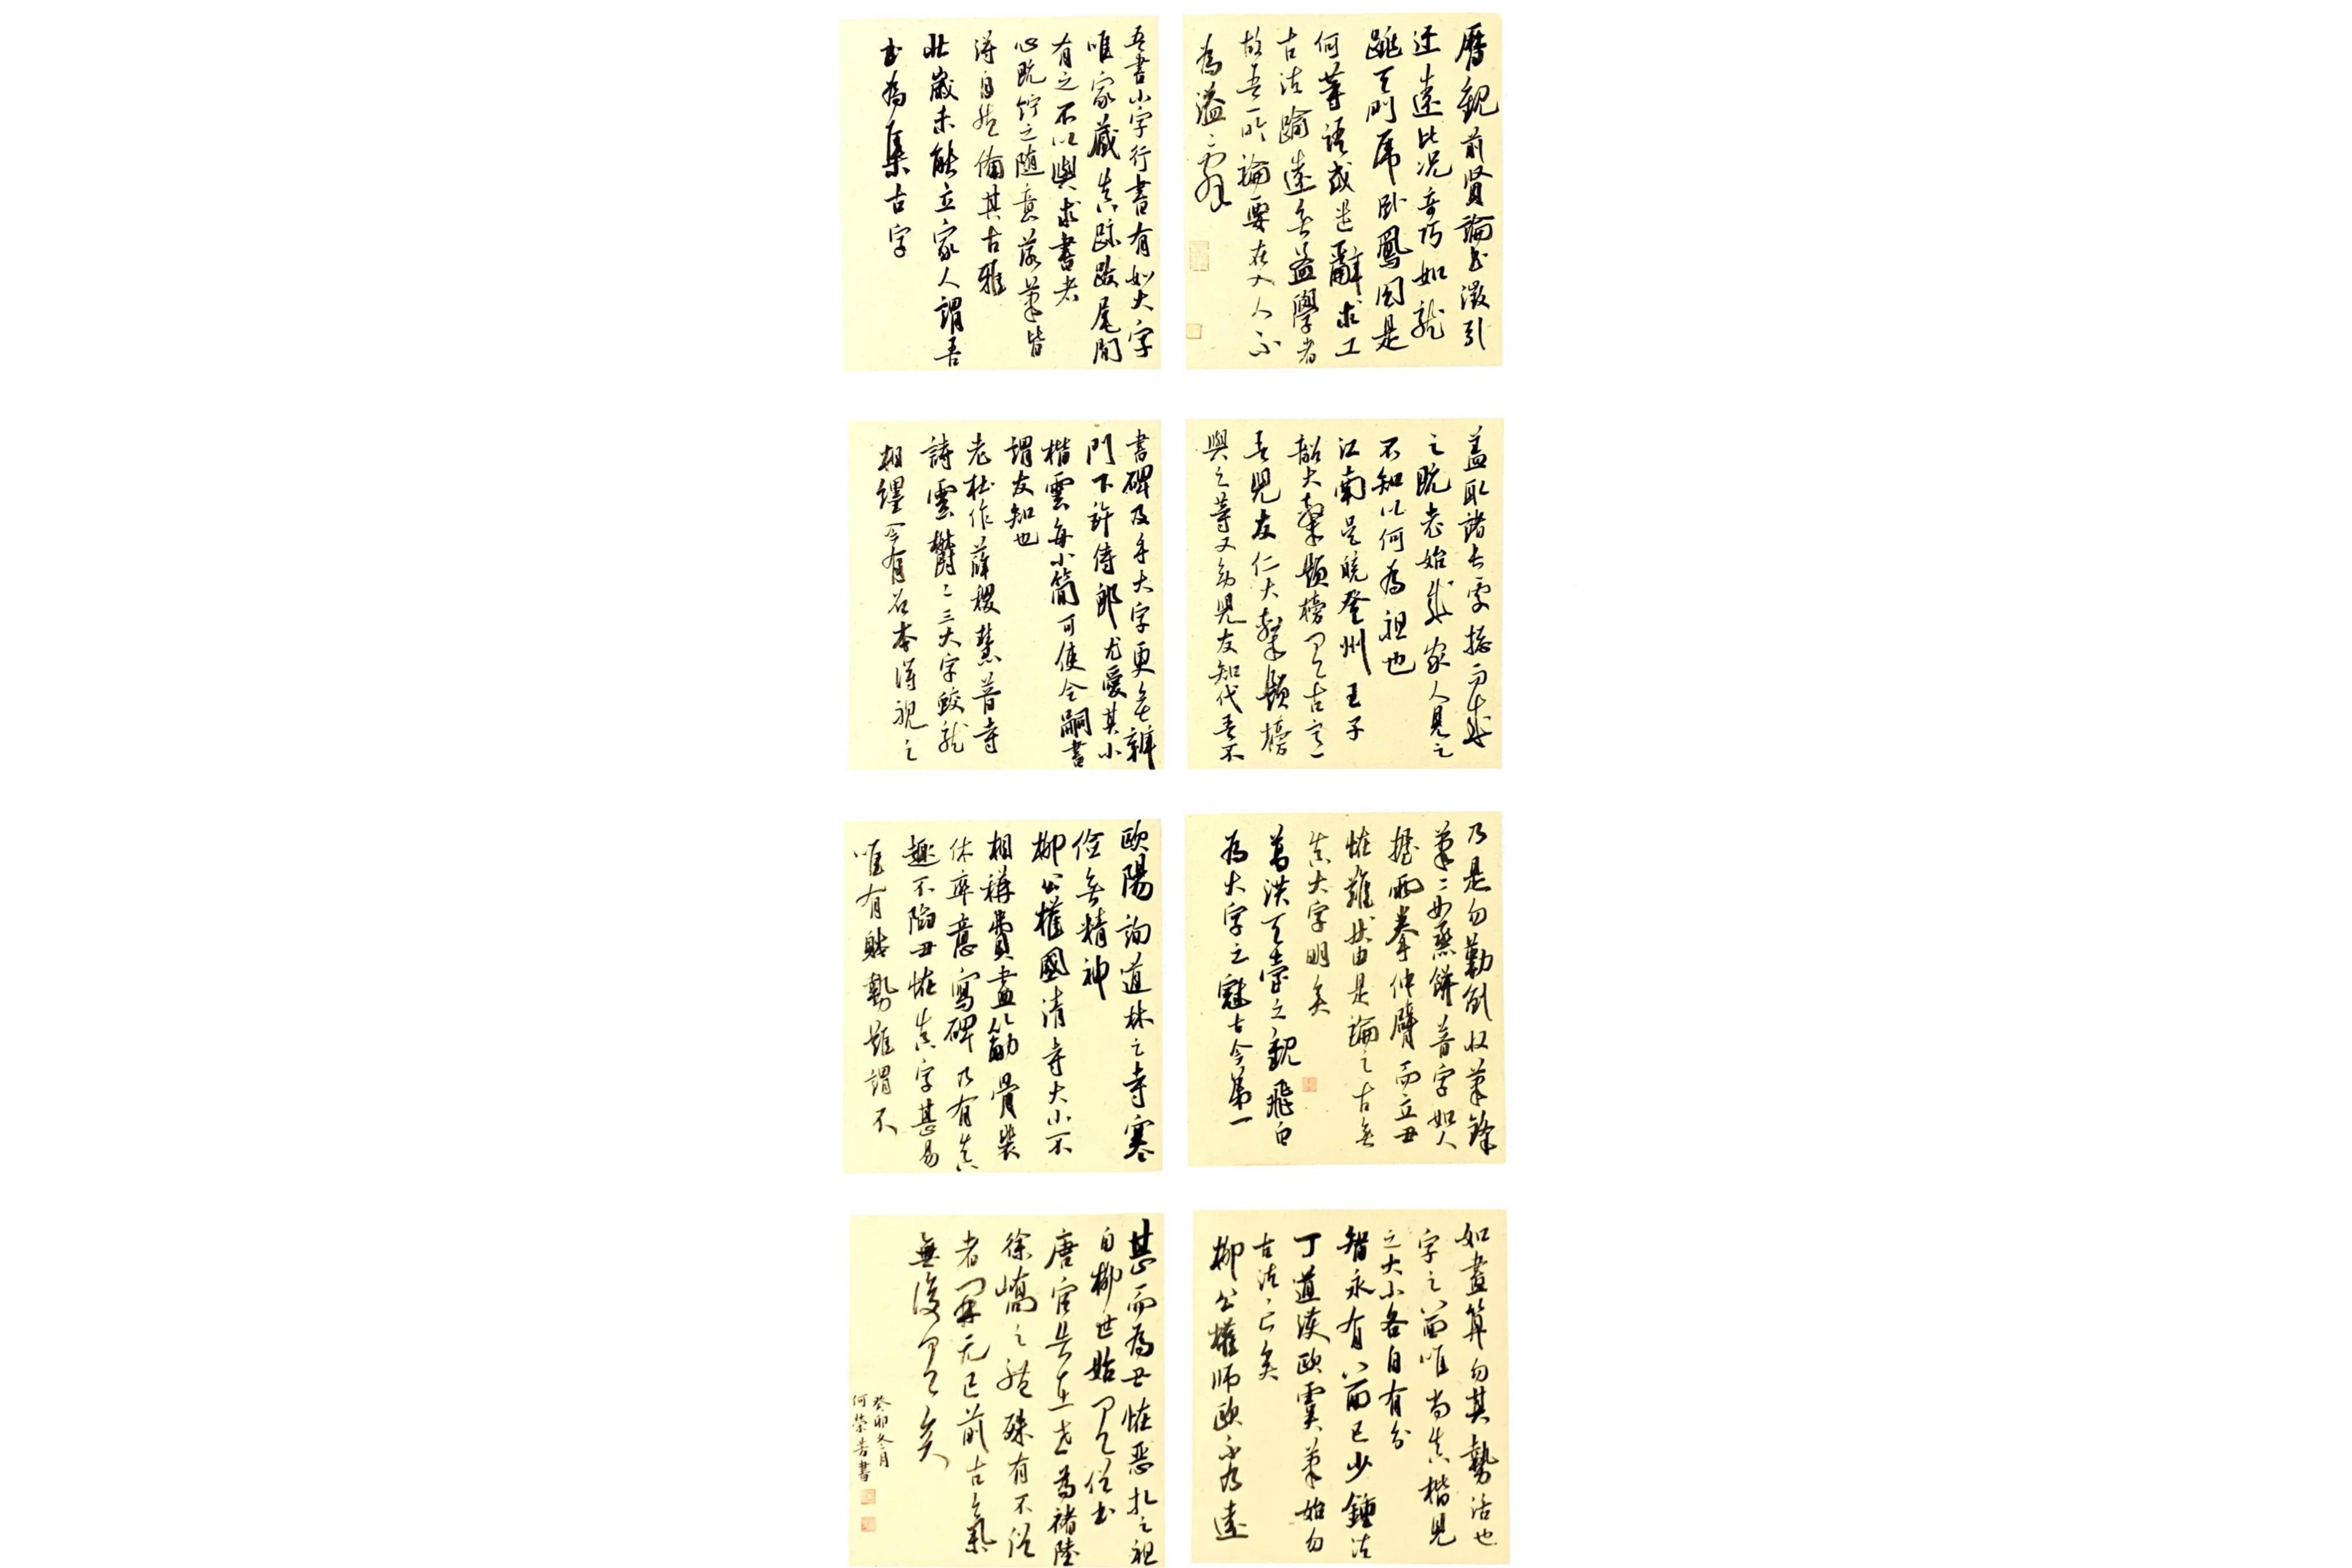 曆觀前賢論書徵引
迂遠比況奇巧如龍
跳天門虎臥鳳閣是
何等語或遣辭求工
去法踰遠無益學者
故吾所論要在入人不
為溢辭
吾書小字行書有如大字
唯家藏真跡跋尾間
有之不以與求書者
心既貯之隨意落筆皆
得自然備其古雅
壯歲未能立家人謂吾
書為集古字
蓋取諸長處總而成
之既老始成家人見之
不知以何為祖也
江南吳皖登州王子
韶大隸題榜有古意
吾兒友仁大隸題榜
與之等又幼兒友知代吾不
書碑及手大字更無辨
門下許侍郎尤愛其小
楷雲每小簡可使令嗣書
謂友知也
老杜作薛稷慧普寺
詩雲鬱鬱三大字蛟龍
相纏今有石本得視之
乃是勾勒倒收筆鋒
筆筆如蒸餅普字如人
握兩拳伸臂而立丑
怪難狀由是論之古無
真大字明矣
葛洪天臺之觀飛白
為大字之冠古今第一
歐陽詢道林之寺寒
儉無精神
柳公權國清寺大小不
相稱費盡筋骨裴
休率意寫碑乃有真
趣不陷丑怪真字甚易
唯有體勢難謂不
如畫算勻其勢活也
字之八面唯尚真楷見
之大小各自有分
智永有八面已少鍾法
丁道護歐虞筆始勻
古法亡矣
柳公權師歐不及遠
甚而為丑怪惡札之祖
自柳世始有俗書
唐官告在世為褚陸
徐嶠之體殊有不俗
者開元已前古氣
無復有矣
癸卯冬月
何榮芳書